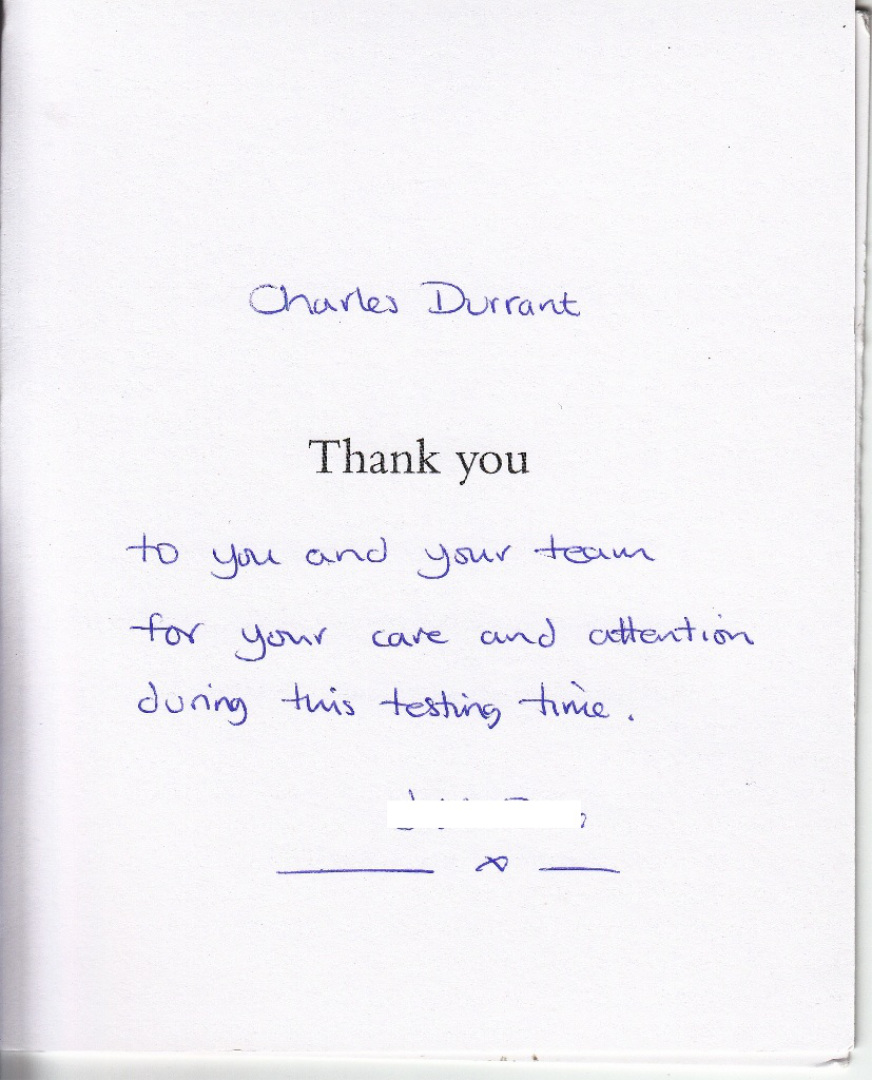 Charles Durrant
Thank you
to you and your team
for your care and attention
during this testing time.
x